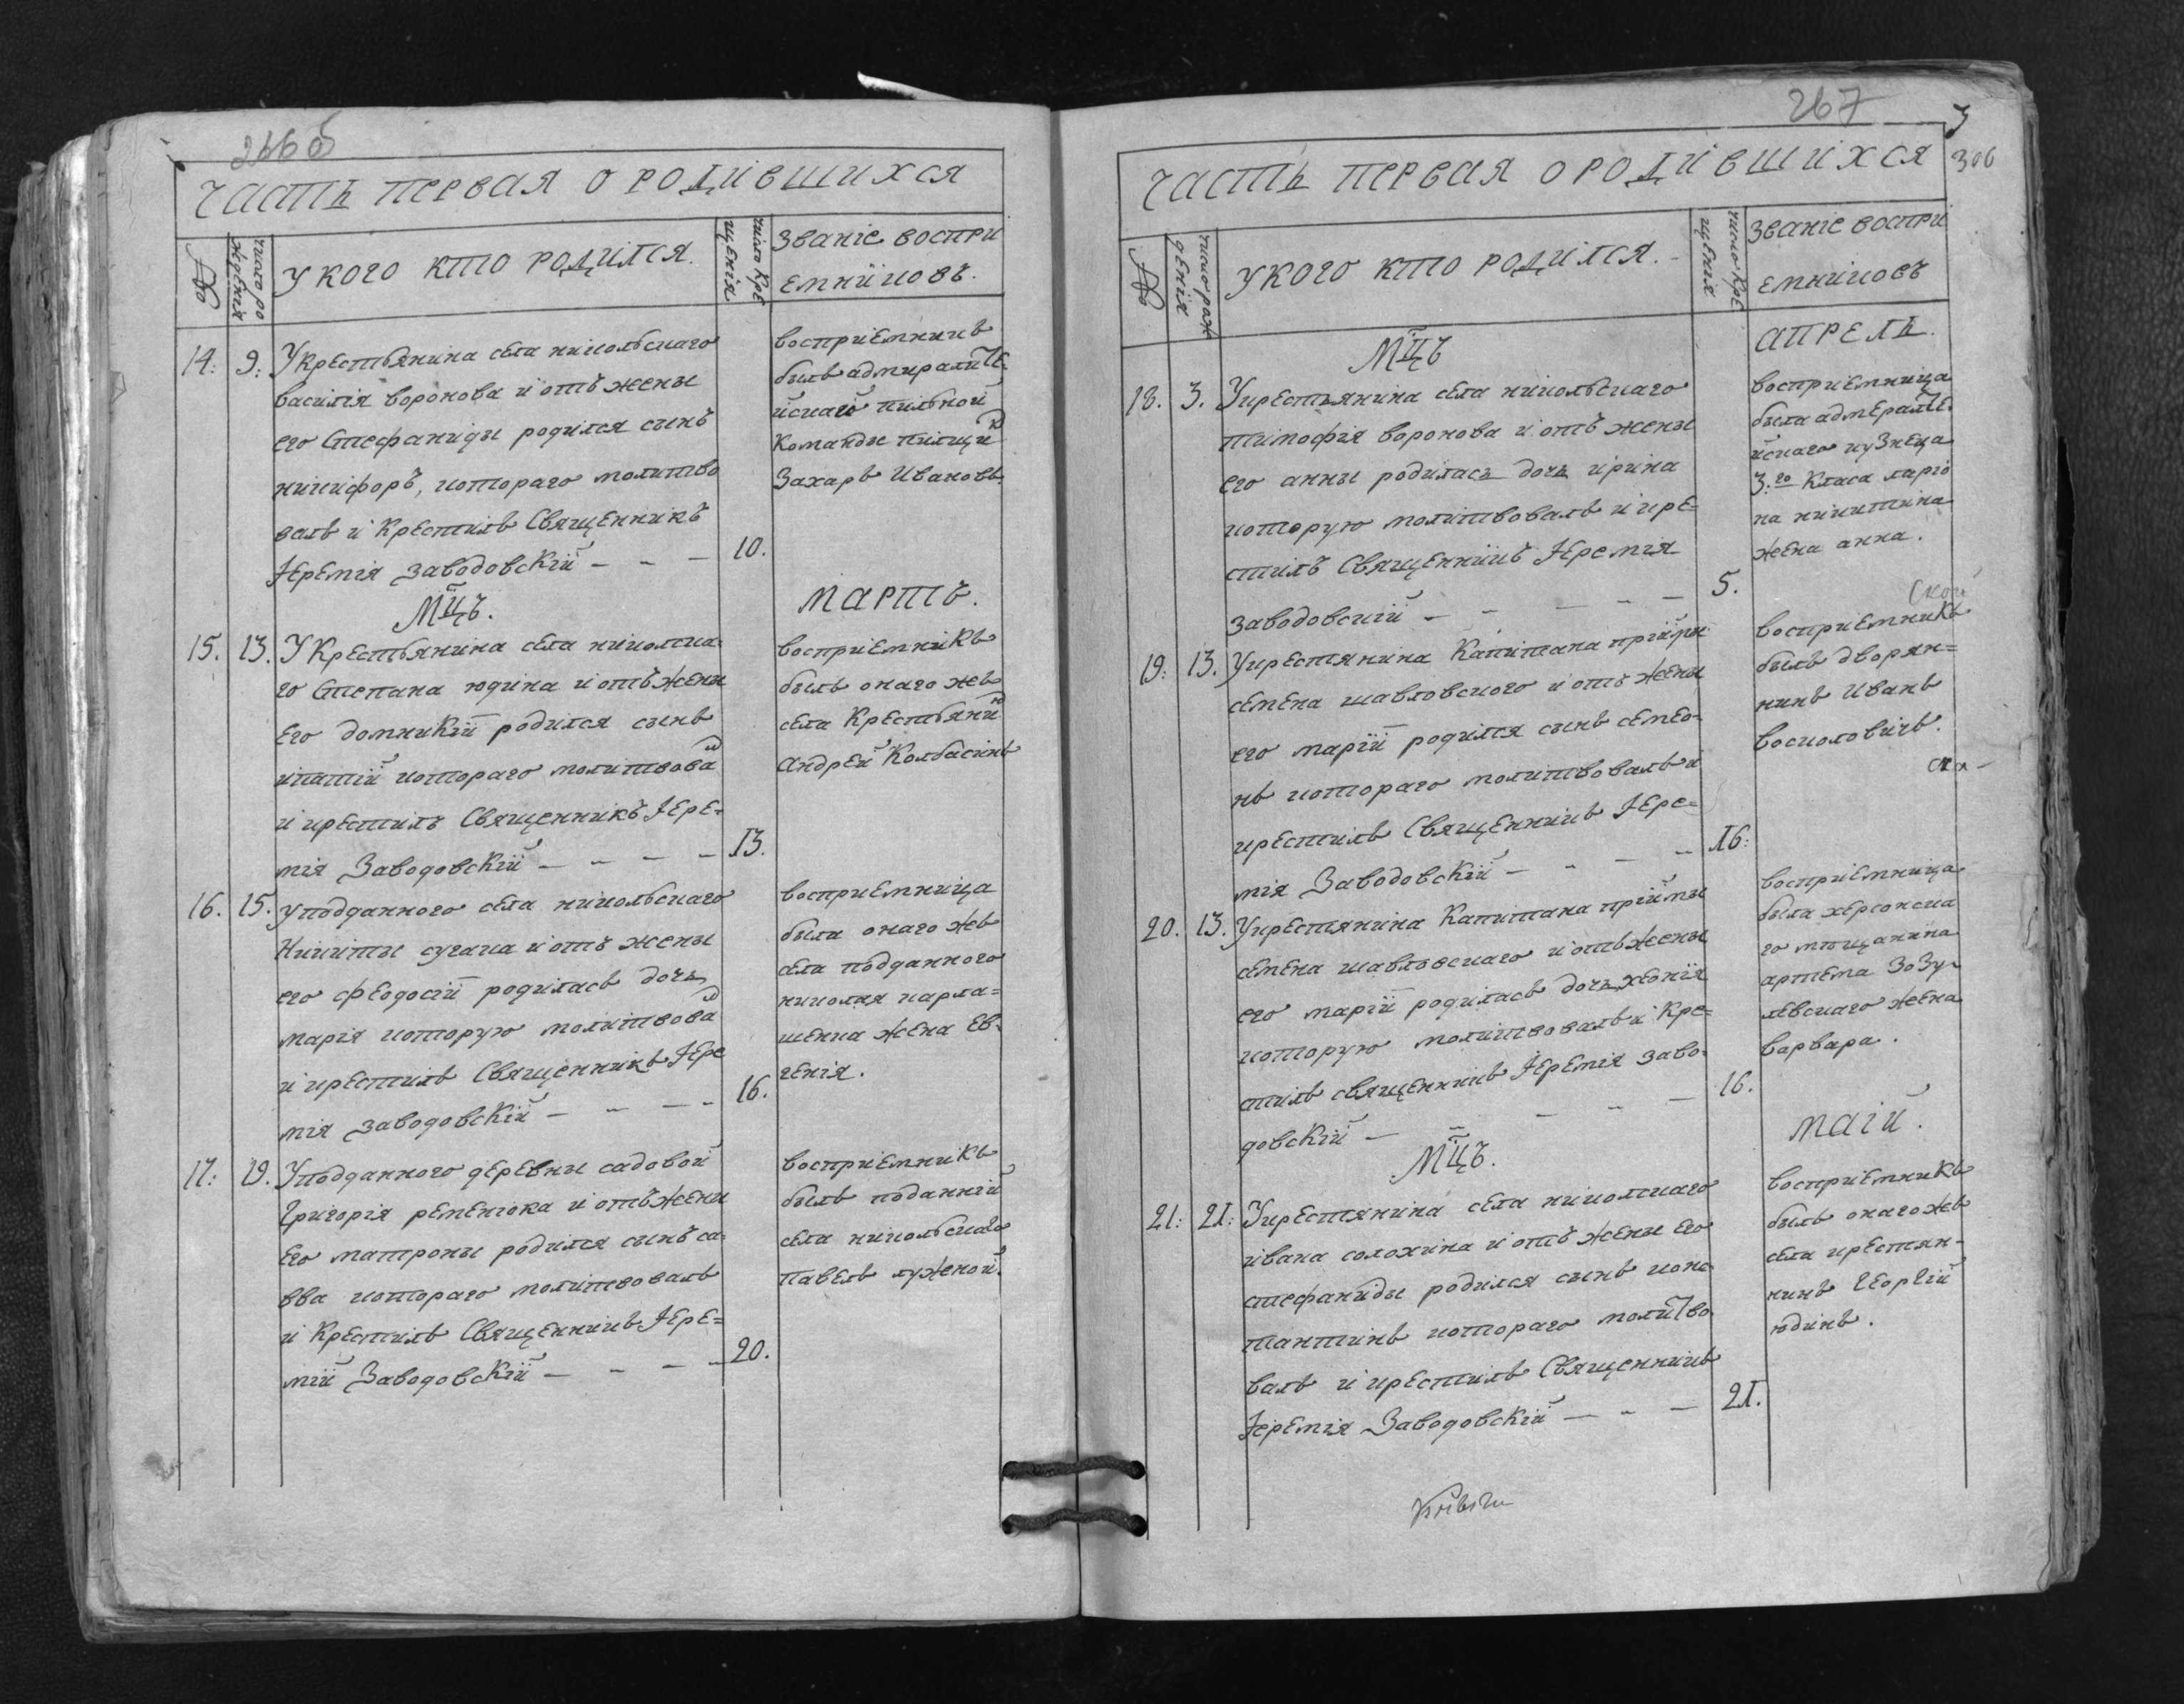 266 об
ЧАСТЬ ПЕРВАЯ О РОДИВШИХСЯ
№
число рождения
У КОГО КТО РОДИЛСЯ.
число крещенія
Званіе воспри
емниковъ.
14: 9: У крестьянина села никольскаго
василія воронова и отъ жены
его Стефаниды родился сынъ
никифоръ, котораго молитво
валъ и крестилъ Священникъ
Іеремія заводовскій — — — 10.
воспріемникъ
былъ адмиралте
йскаго пильной
команды пилщик
Захаръ Ивановъ.
Мцъ. МАРТЪ.
15. 13. У крестьянина села николска-
го Степана юдина и отъ жены
Его домникіи родился сынъ
ипатій котораго молитвова л
и крестилъ Священникъ Іере=
мія Заводовскій — — — — 13.
воспріемникъ
былъ онаго жъ
села Крестьяни н
Андрей Колбасинъ
16. 15. у подданного села никольскаго
Никиты сугака и отъ жены
его феодосіи родилась дочь
марія которую молитвова л
и крестилъ Священникъ Іере
мія заводовскій — — — — 16.
воспріемница
была онаго жъ
села подданного
николая карла=
шенка жена Ев-
генія.
17: 19. У подданного деревны садовой
Григорія ременюка и отъ жены
Его матроны родился сынъ са-
вва котораго молитвовалъ
и Крестилъ Священникъ Іере=
мій Заводовскій — — — — 20.
воспріемникъ
былъ поданній
села никольскаго
павелъ луженой.
267
3
306
ЧАСТЬ ПЕРВАЯ О РОДИВШИХСЯ
№
число рождения
У КОГО КТО РОДИЛСЯ.
число крещенія
Званіе воспри
емниковъ
Мцъ АПРЕЛЬ.
18. 3. У крестьянина села никольскаго
тимофія воронова и отъ жены
его анны родилась дочь ирина
которую молитвовалъ и кре=
стилъ Священникъ Іеремія
заводовскій — — — — — 5.
воспріемница
была адмералте-
йскаго кузнеца
3.го класа ларіо
на никитина
жена анна.
19: 13. У крестянина Капитана пріймы
семена шавловского и отъ жены
его маріи родился сынъ семео-
нъ котораго молитвовалъ и
крестилъ Священникъ Іере=
мія Заводовскій — — — — 16:
ской
воспріемникъ
былъ дворян=
нинъ Иванъ
восколовичъ.
20. 13. У крестянина Капитана пріймы
семена шавловскаго и отъ жены
его маріи родилась дочь хіонія
которую молитвовалъ и Кре=
стилъ священникъ Іеремія заво-
довскій — — — — 16.
воспріемница
была херсонска
го мещанина
артема Зозу-
левскаго жена
варвара.
Мцъ. МАІЙ.
21: 21: У крестянина села николскаго
ивана солохина и отъ жены его
стефаниды родился сынъ конс
тантинъ котораго молитво
валъ и крестилъ Священникъ
Іеремія Заводовскій — — — 21.
воспріемникъ
былъ онаго жъ
села крестян-
нинъ Георгій
юдинъ.